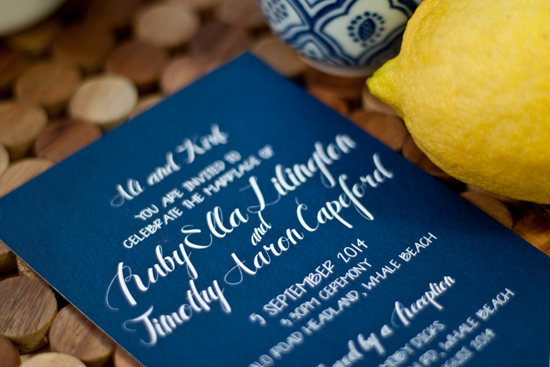 Ali and Kirk
YOU ARE INVITED TO
CELEBRATE THE MARRIAGE OF
Ruby Ella Lilington
and
Timothy Aaron Capeford
5 SEPTEMBER 2014
3:30PM CEREMONY
ROAD HEADLAND, WHALE BEACH
by a Reception
RD, WHALE BEACH
2014